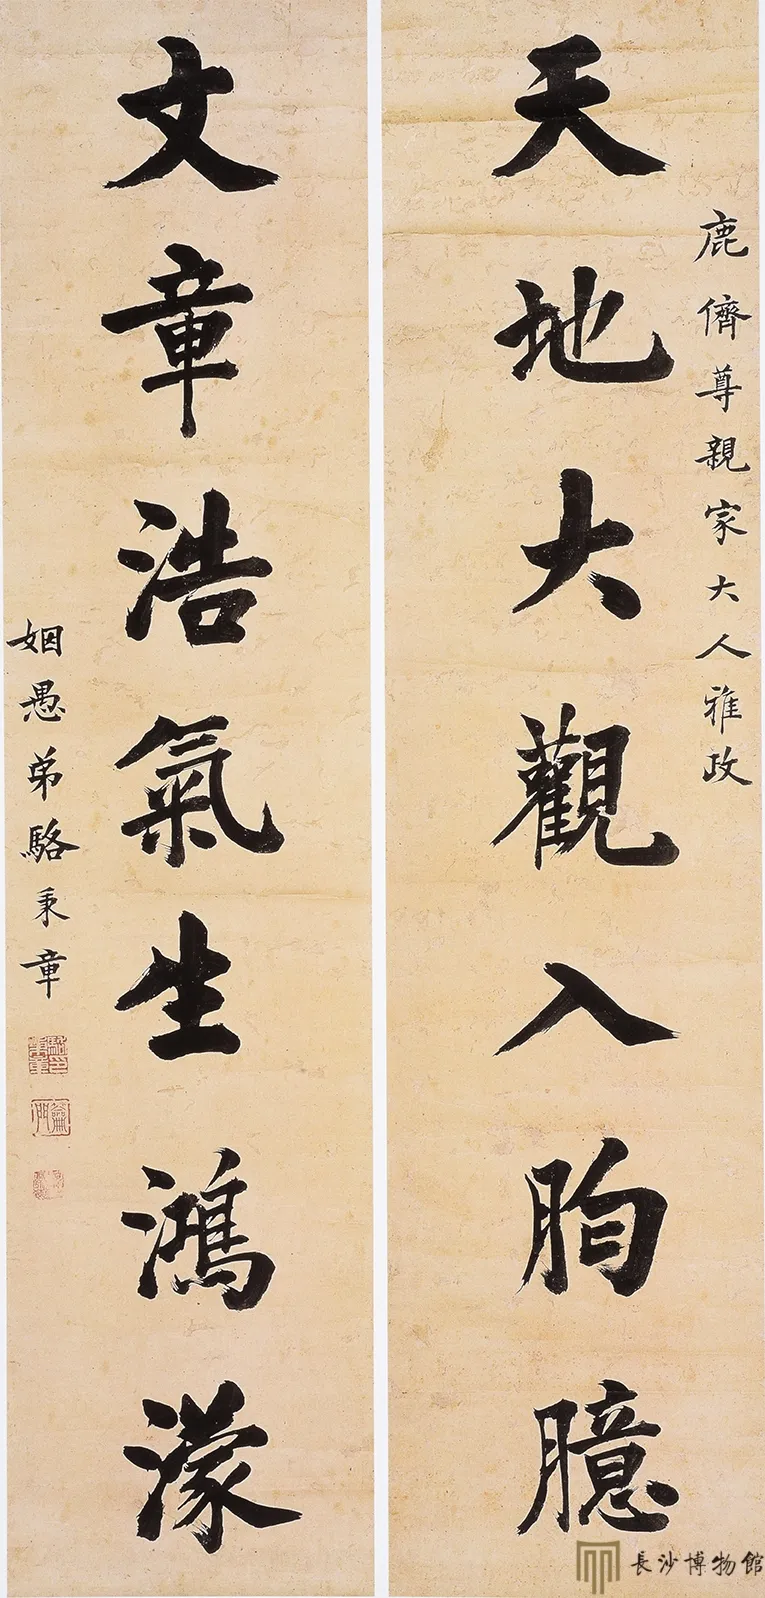 鹿儕尊親家大人雅政
天地大觀入胸臆
文章浩氣生鴻濛
姻愚弟駱秉章
駱印秉章
籥門
長沙博物館